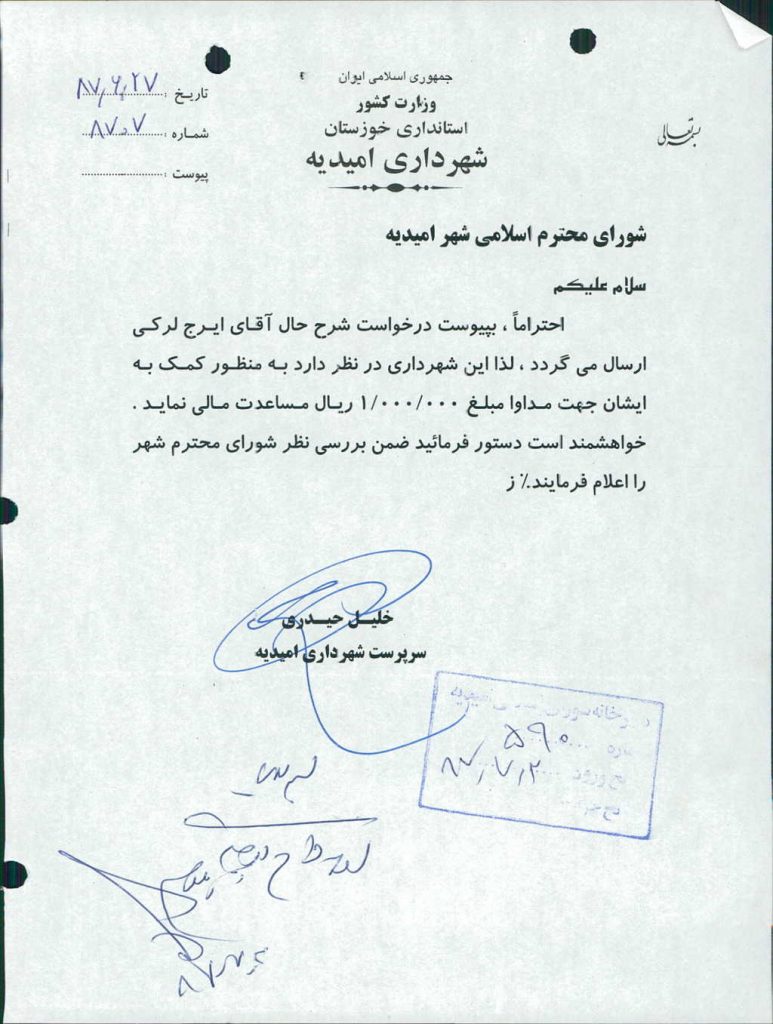 بسمه تعالی
جمهوری اسلامی ایران
وزارت کشور
استانداری خوزستان
شهرداری امیدیه
تاریخ : ۸۷,۶,۲۷
شماره : ۸۷۰۷
پیوست :
شورای محترم اسلامی شهر امیدیه
سلام علیکم
احتراماً ، بپیوست درخواست شرح حال آقای ایرج لرکی
ارسال می گردد ، لذا این شهرداری در نظر دارد به منظور کمک به
ایشان جهت مداوا مبلغ ۱/۰۰۰/۰۰۰ ریال مساعدت مالی نماید .
خواهشمند است دستور فرمائید ضمن بررسی نظر شورای محترم شهر
را اعلام فرمایند./ ز
خلیل حیدری
سرپرست شهرداری امیدیه
۵۹۰
۸۷,۷,۲